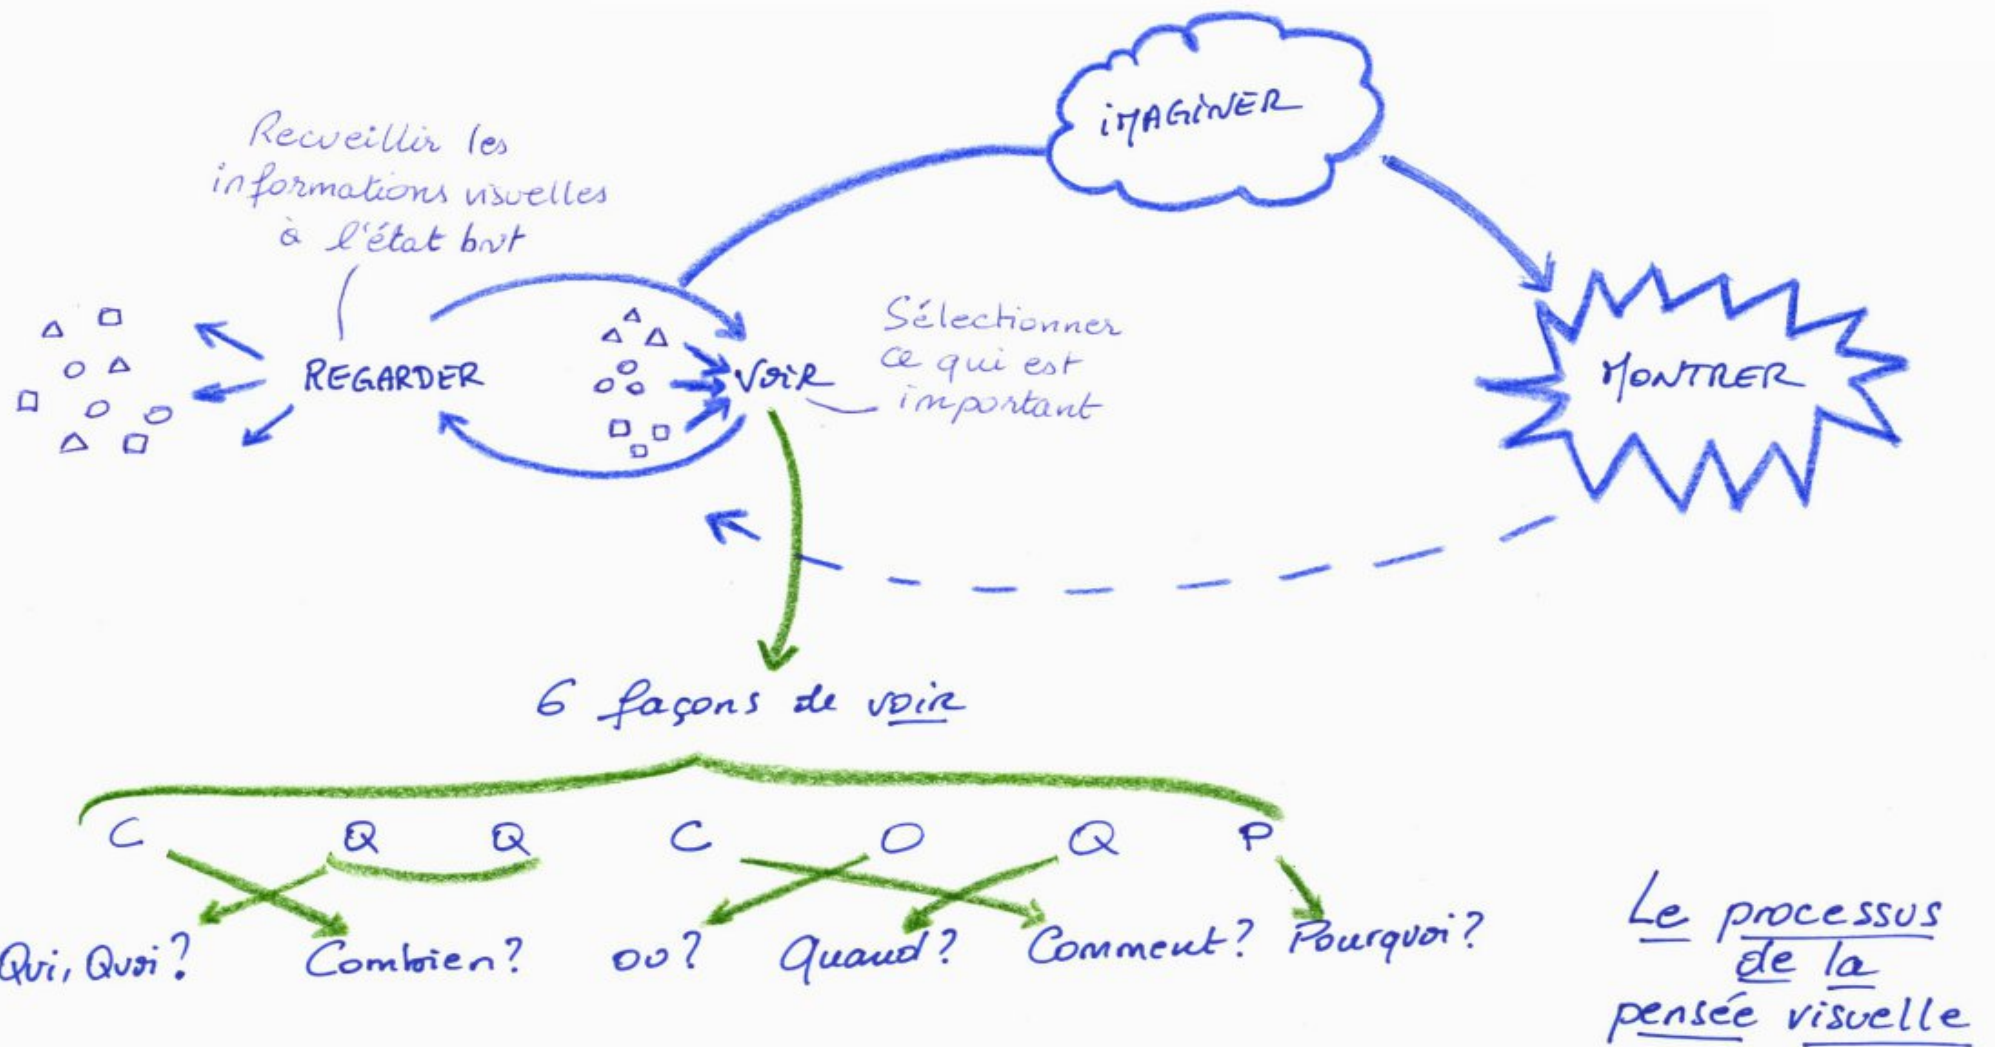 iMAGiNER
Recueillir les
informations visuelles
à l'état brut
REGARDER
VOiR
Sélectionner
ce qui est
important
MONTRER
6 façons de voir
C Q Q C O Q P
Qui, Quoi? Combien? où? Quand? Comment? Pourquoi?
Le processus
de la
pensée visuelle